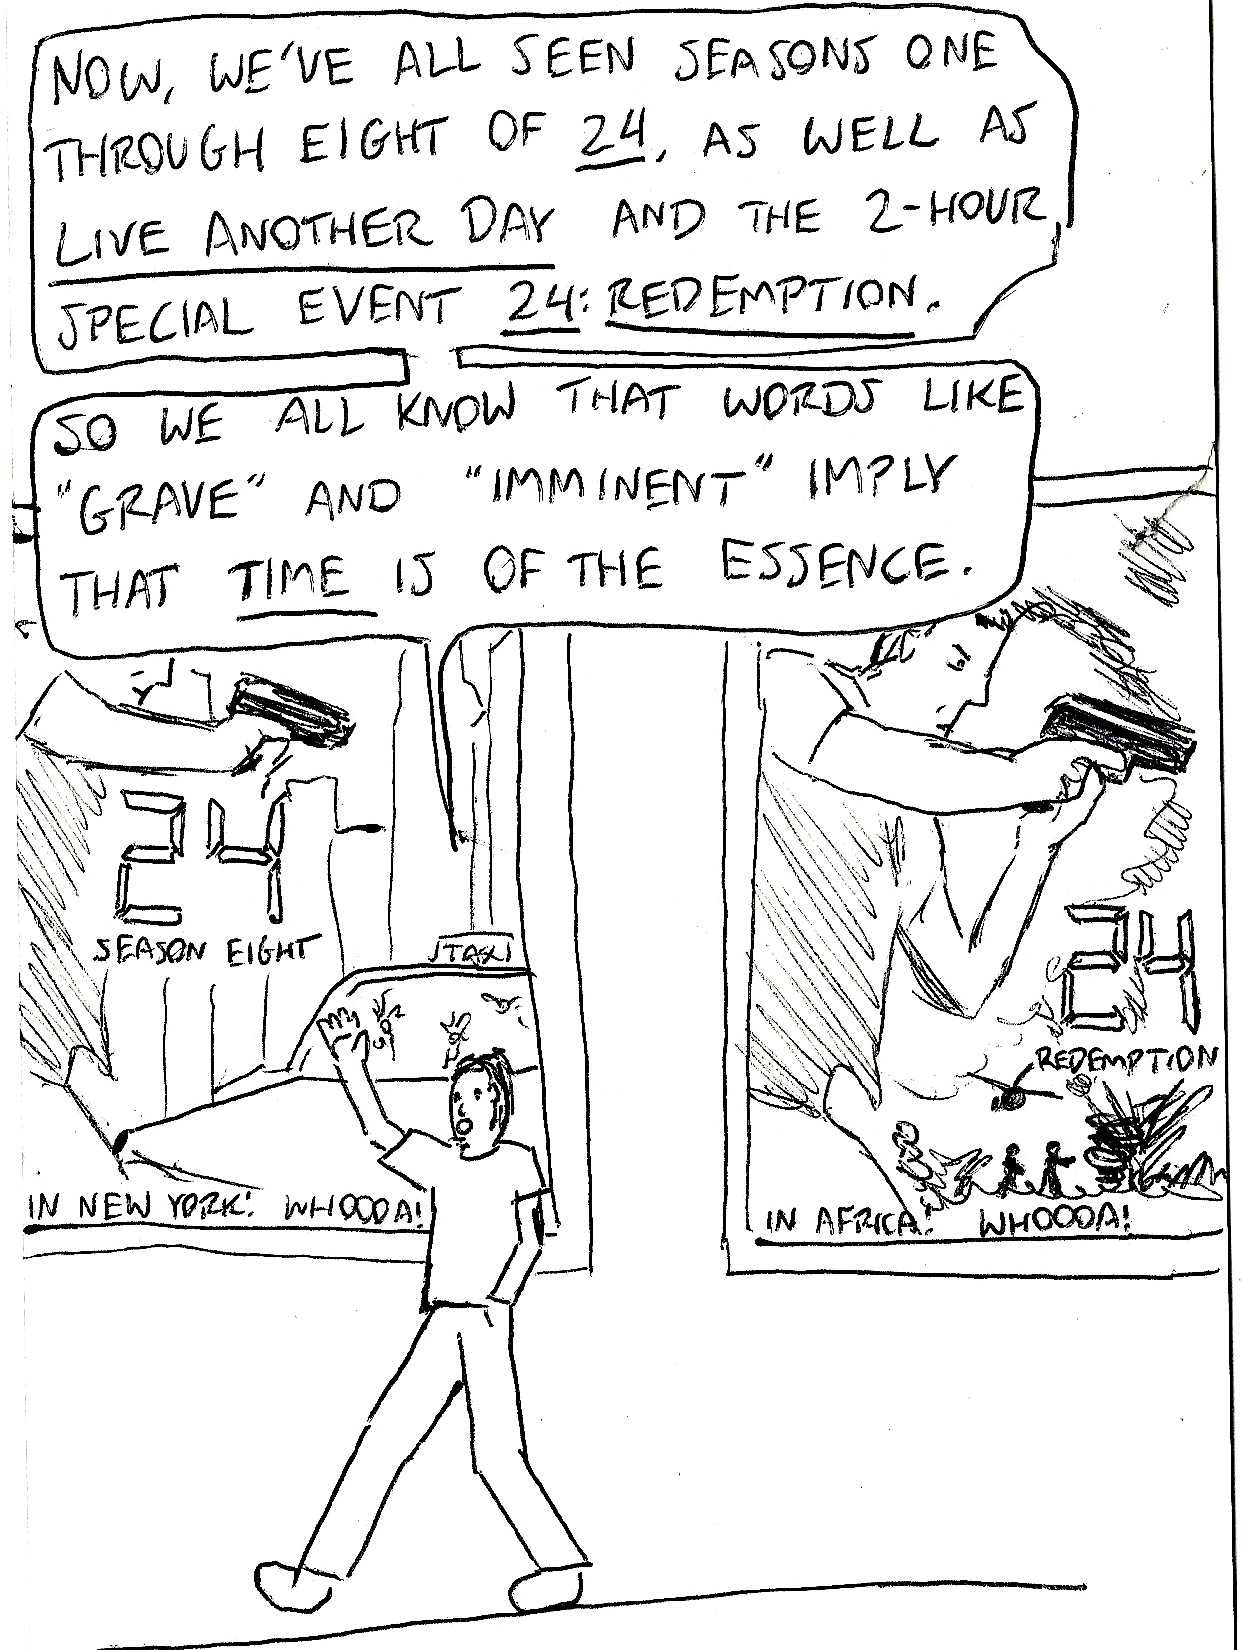 NOW, WE'VE ALL SEEN SEASONS ONE
THROUGH EIGHT OF 24, AS WELL AS
LIVE ANOTHER DAY AND THE 2-HOUR
SPECIAL EVENT 24: REDEMPTION.
SO WE ALL KNOW THAT WORDS LIKE
"GRAVE" AND "IMMINENT" IMPLY
THAT TIME IS OF THE ESSENCE.
24
SEASON EIGHT
TAXI
IN NEW YORK! WHOOOA!
24
REDEMPTION
IN AFRICA! WHOOOA!